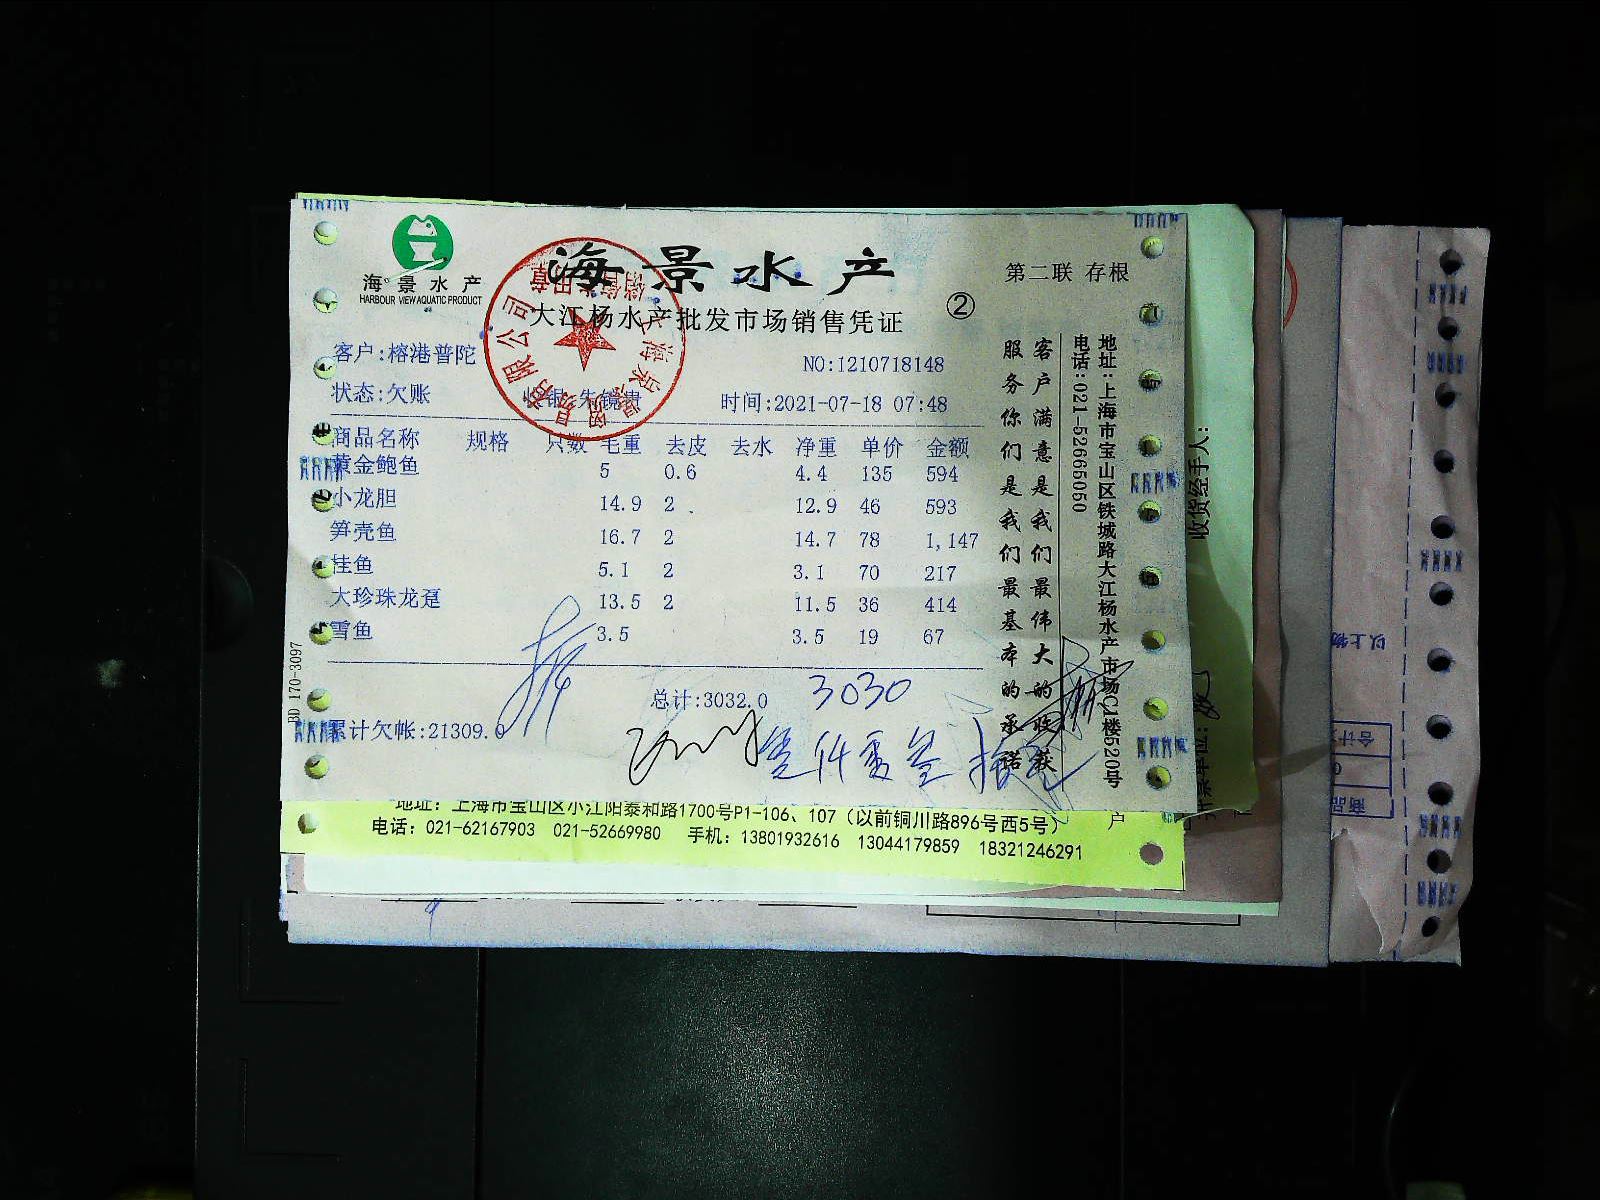 海景水产
HARBOUR VIEW AQUATIC PRODUCT
海景水产
第二联 存根
大江杨水产批发市场销售凭证
②
客户:榕港普陀
NO:1210718148
状态:欠账
收银:朱镜贵
时间:2021-07-18 07:48
商品名称 规格 只数 毛重 去皮 去水 净重 单价 金额
黄金鲍鱼 5 0.6 4.4 135 594
小龙胆 14.9 2 12.9 46 593
笋壳鱼 16.7 2 14.7 78 1,147
桂鱼 5.1 2 3.1 70 217
大珍珠龙趸 13.5 2 11.5 36 414
雪鱼 3.5 3.5 19 67
总计:3032.0
3030
累计欠帐:21309.0
BD 170-3097
客户满意是我们最伟大的收获
服务你们是我们最基本的承诺
地址:上海市宝山区铁城路大江杨水产市场C1楼520号
电话:021-52665050
收货经手人:
地址：上海市宝山区小江阳泰和路1700号P1-106、107（以前铜川路896号西5号）
电话：021-62167903 021-52669980 手机：13801932616 13044179859 18321246291
户
以上物
合计
商品